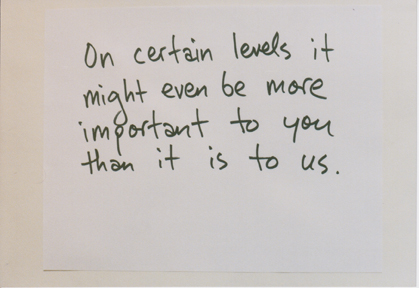 On certain levels it
might even be more
important to you
than it is to us.